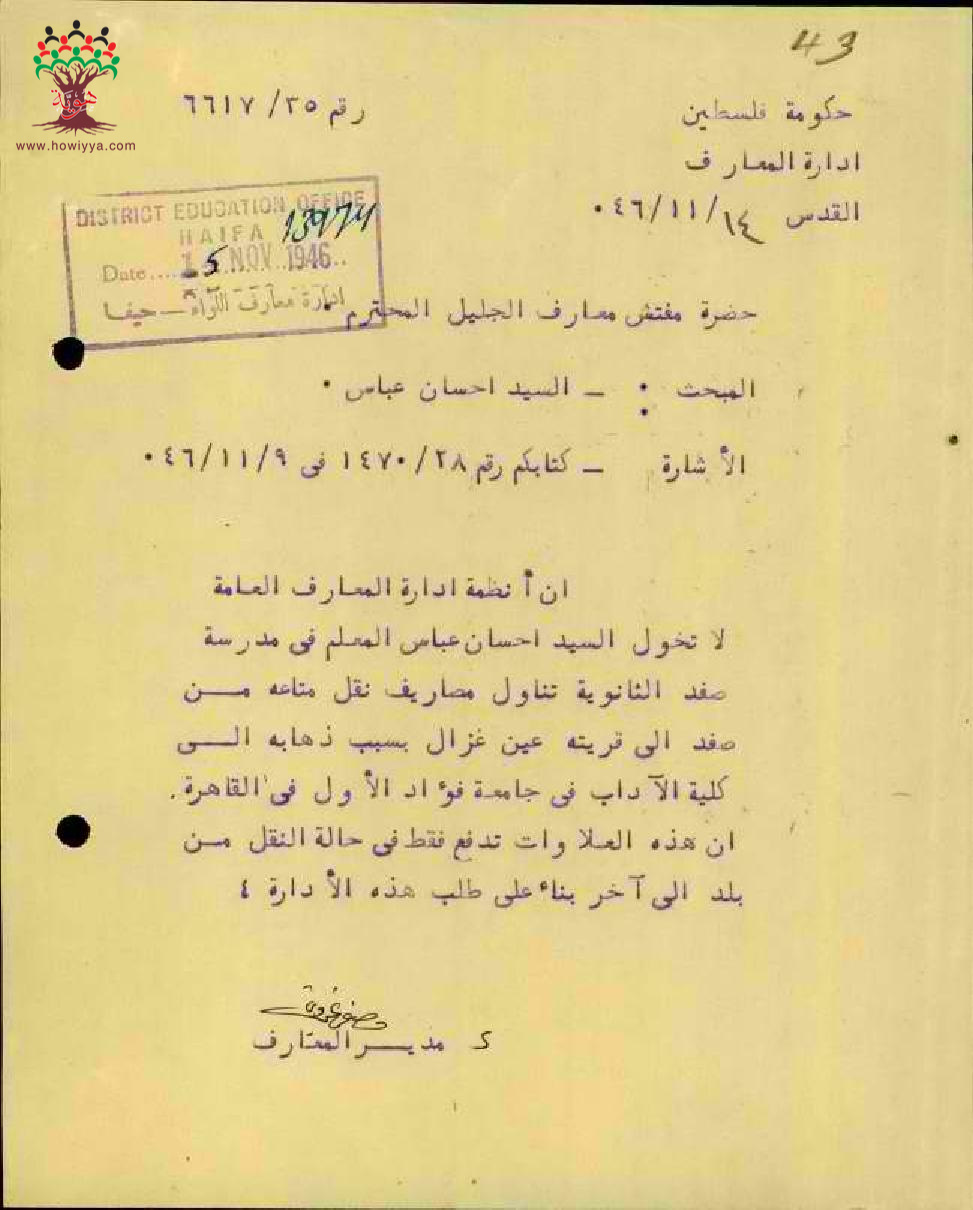 43
www.howiyya.com
رقم ٣٥/ ٦٦١٧
حكومة فلسطين
ادارة المعارف
القدس ١٤/ ١١/ ٤٦٠
DISTRICT EDUCATION OFFICE
13974
HAIFA
Date.... 15 NOV 1946..
ادارة معارف اللواء — حيفا
حضرة مفتش معارف الجليل المحترم ٠
المبحث : — السيد احسان عباس ٠
الأشارة — كتابكم رقم ٢٨/ ١٤٧٠ فى ٩/ ١١/ ٤٦٠
ان أنظمة ادارة المعارف العامة
لا تخول السيد احسان عباس المعلم فى مدرسة
صفد الثانوية تناول مصاريف نقل متاعه مــن
صفد الى قريته عين غزال بسبب ذهابه الــى
كلية الآداب فى جامعة فؤاد الأول فى القاهرة.
ان هذه العلاوات تدفع فقط فى حالة النقل مــن
بلد الى آخر بناء على طلب هذه الأدارة ٤
ك مديــر المعارف